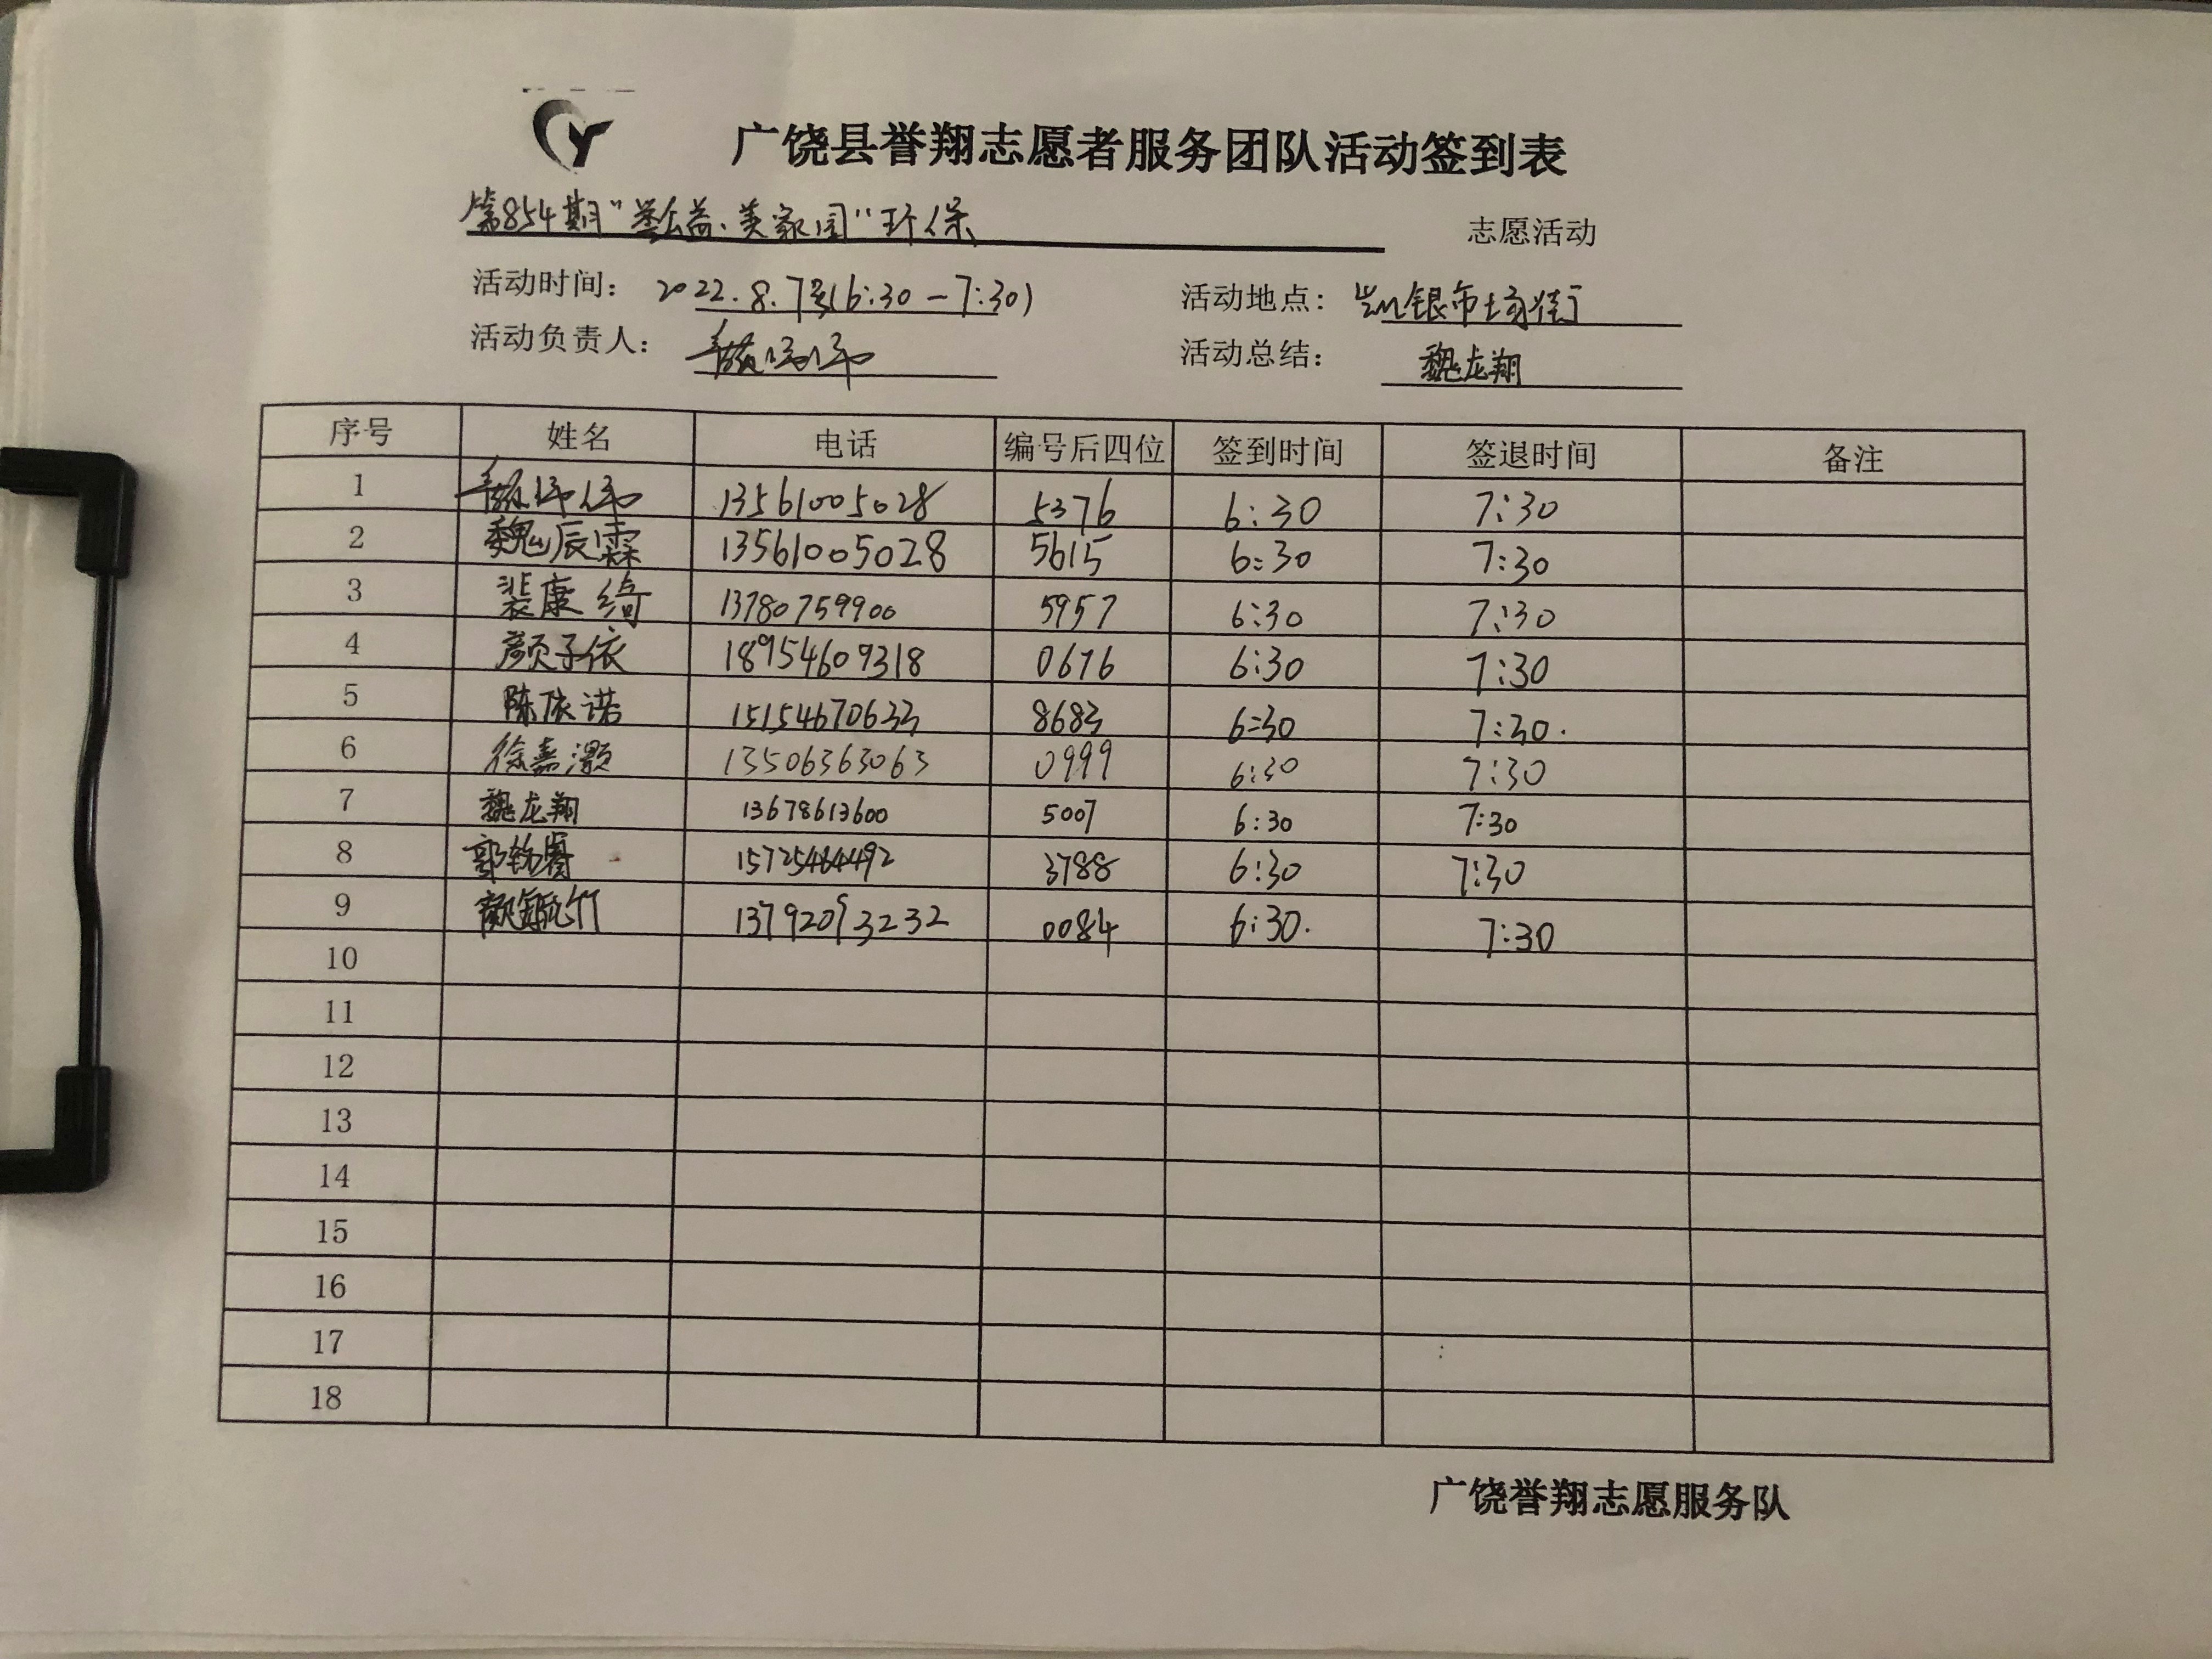 广饶县誉翔志愿者服务团队活动签到表
第854期“益公益、美家园”环保 志愿活动
活动时间： 2022.8.7号(6:30-7:30) 活动地点： 凯银市场街
活动负责人： 活动总结： 魏龙翔
序号 姓名 电话 编号后四位 签到时间 签退时间 备注
1 13561005028 5376 6:30 7:30
2 魏辰霖 13561005028 5615 6:30 7:30
3 裴康绮 13780759900 5957 6:30 7:30
4 颜子依 18954609318 0676 6:30 7:30
5 陈依诺 15154670633 8683 6:30 7:30.
6 徐嘉灏 13506363063 0999 6:30 7:30
7 魏龙翔 13678613600 5007 6:30 7:30
8 15725464492 3788 6:30 7:30
9 13792093232 0084 6:30. 7:30
10
11
12
13
14
15
16
17
18
广饶誉翔志愿服务队